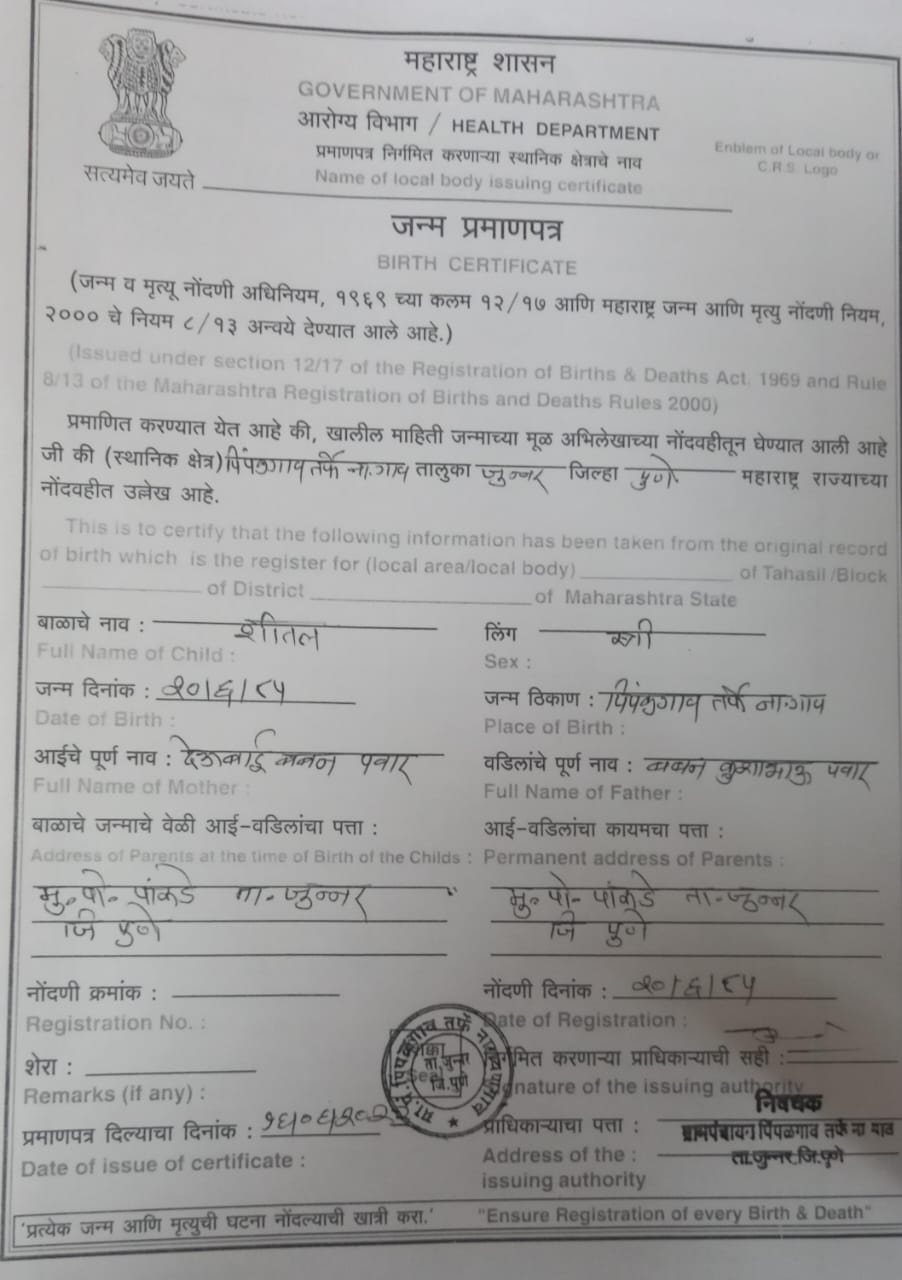 महाराष्ट्र शासन
GOVERNMENT OF MAHARASHTRA
आरोग्य विभाग / HEALTH DEPARTMENT
प्रमाणपत्र निर्गमित करणाऱ्या स्थानिक क्षेत्राचे नाव
Name of local body issuing certificate
Enblem of Local body or
C.R.S. Logo
सत्यमेव जयते
जन्म प्रमाणपत्र
BIRTH CERTIFICATE
(जन्म व मृत्यू नोंदणी अधिनियम, १९६९ च्या कलम १२/१७ आणि महाराष्ट्र जन्म आणि मृत्यु नोंदणी नियम,
२००० चे नियम ८/१३ अन्वये देण्यात आले आहे.)
(Issued under section 12/17 of the Registration of Births & Deaths Act. 1969 and Rule
8/13 of the Maharashtra Registration of Births and Deaths Rules 2000)
प्रमाणित करण्यात येत आहे की, खालील माहिती जन्माच्या मूळ अभिलेखाच्या नोंदवहीतून घेण्यात आली आहे
जी की (स्थानिक क्षेत्र) पिंपळगाव तर्फे ना.गाव तालुका जुन्नर जिल्हा पुणे महाराष्ट्र राज्याच्या
नोंदवहीत उल्लेख आहे.
This is to certify that the following information has been taken from the original record
of birth which is the register for (local area/local body) of Tahasil /Block
of District of Maharashtra State
बाळाचे नाव : शीतल लिंग स्त्री
Full Name of Child : Sex :
जन्म दिनांक : २०/६/८५ जन्म ठिकाण : पिंपळगाव तर्फे ना.गाव
Date of Birth : Place of Birth :
आईचे पूर्ण नाव : देऊबाई बबन पवार वडिलांचे पूर्ण नाव : बबन कुशाभाऊ पवार
Full Name of Mother : Full Name of Father :
बाळाचे जन्माचे वेळी आई-वडिलांचा पत्ता : आई-वडिलांचा कायमचा पत्ता :
Address of Parents at the time of Birth of the Childs : Permanent address of Parents :
मु.पो. ता. जुन्नर मु.पो. ता. जुन्नर
जि पुणे जि पुणे
नोंदणी क्रमांक : नोंदणी दिनांक : २०/६/८५
Registration No. : Date of Registration :
शेरा : निर्गमित करणाऱ्या प्राधिकाऱ्याची सही :
Remarks (if any) : Signature of the issuing authority
ता.जुन्नर
जि.पुणे
Seal
निबंधक
प्रमाणपत्र दिल्याचा दिनांक : प्राधिकाऱ्याचा पत्ता : ग्रामपंचायत पिंपळगाव तर्फे ना गाव
Date of issue of certificate : Address of the : ता.जुन्नर.जि.पुणे
issuing authority
'प्रत्येक जन्म आणि मृत्युची घटना नोंदल्याची खात्री करा.' "Ensure Registration of every Birth & Death"